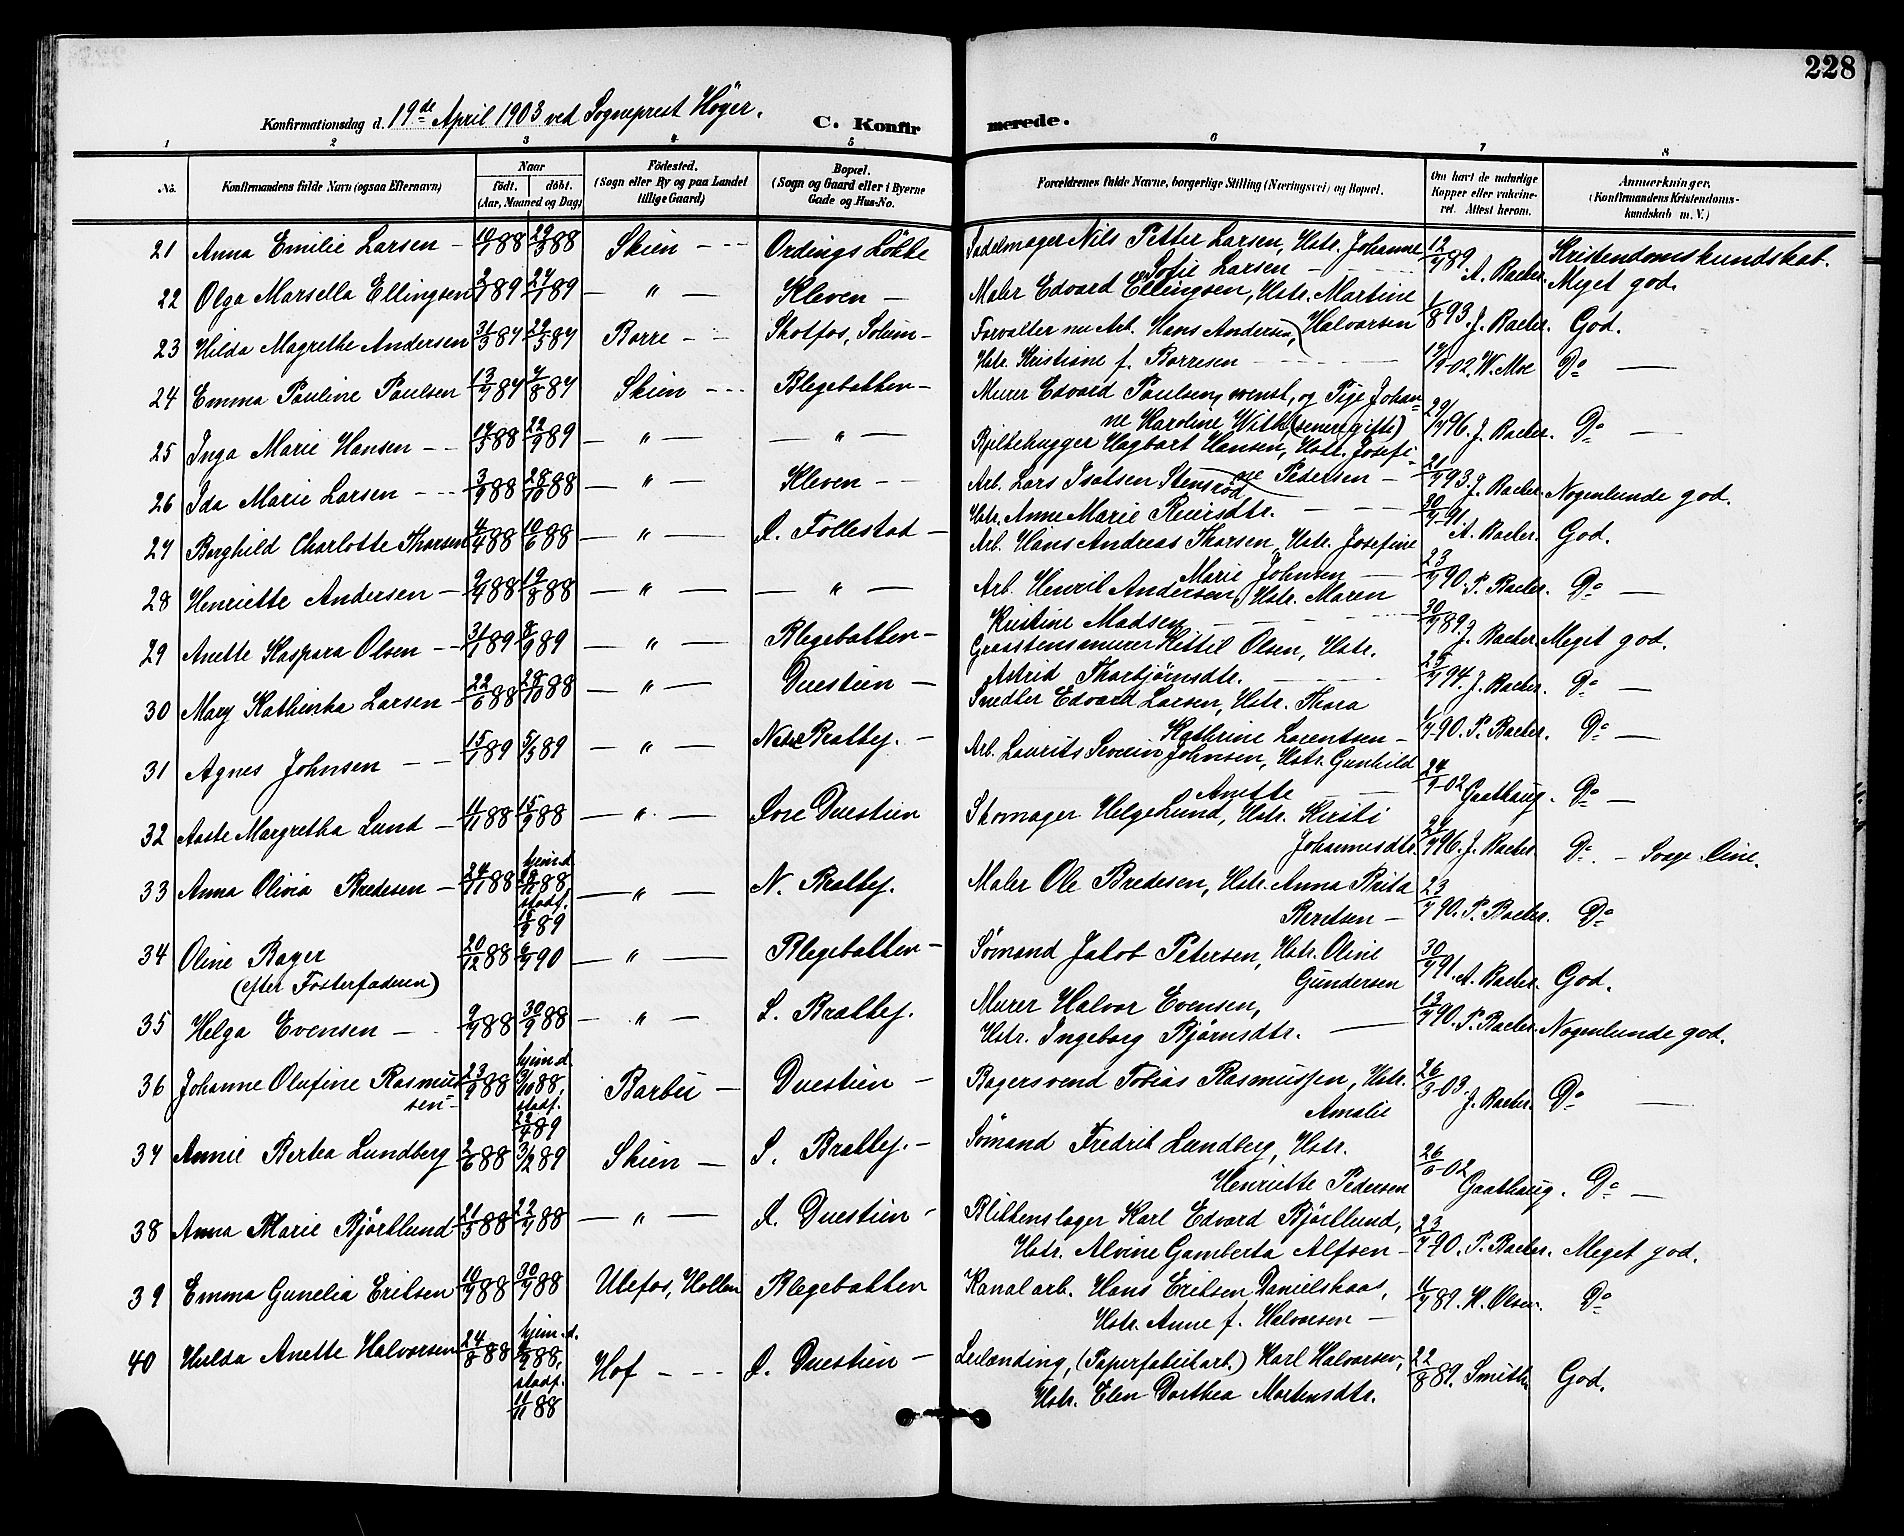 228
Konfirmationsdag d. 19de April 1903 ved Sogneprest Höyer. C. Konfirmerede.
1 2 3 4 5 6 7 8
No. Konfirmandens fulde Navn (ogsaa Efternavn) Naar födt. döbt. (Aar, Maaned og Dag) Födested. (Sogn eller By og paa Landet tillige Gaard) Bopæl. (Sogn og Gaard eller i Byerne Gade og Hus-No. Forældrenes fulde Navne, borgerlige Stilling (Næringsvei) og Bopæl. Om havt de naturlige Kopper eller vakcineret. Attest herom. Anmærkninger. (Konfirmandens Kristendomskundskab m. V.)
21 Anna Emilie Larsen 88 88 Skien Ordings Lökke Sadelmager Nils Petter Larsen, Hstr. Johanne Sofie Larsen 89 A. Backer. Kristendomskundskab. Meget god.
22 Olga Marsella Ellingsen 89 89 " Kleven Maler Edvard Ellingsen, Hstr. Martine Halvorsen 1/8 93. J. Backer. God.
23 Hilda Magrethe Andersen 87 87 Borre Skotfos, Solum Forvalter nu Arb. Hans Andersen, Hstr. Kristiane f. Borresen 02. W. Moe Do
24 Emma Pauline Paulsen 87 87 Skien Blegebakken Murer Edvard Paulsen, svensk, og Pige Johanne Karoline With (senere gifte) 29/7 96. J. Backer. Do
25 Inga Marie Hansen 88 89 " " Bjelkehugger Hagbart Hansen, Hstr. Josefine Pedersen 21/7 93. J. Backer. Nogenlunde god.
26 Ida Marie Larsen 88 28/10 88 " Kleven Arb. Lars Isaksen Stensrød Hstr. Anne Marie Reiersdtr. 30/7 91. A. Backer. God.
27 Borghild Charlotte Thorsen 4/4 88 10/6 88 " Ö. Follestad Arb. Hans Andreas Thorsen, Hstr. Josefine Marie Johnsen 23/7 90. P. Backer. Do
28 Henriette Andersen 88 19/8 88 " " Arb. Henrik Andersen, Hstr. Maren Kristine Madsen 30/7 89. J. Backer. Meget god.
29 Anette Kaspara Olsen 31/1 89 89 " Blegebakken Graastensmurer Kittil Olsen, Hstr. Astrid Thorbjørnsdtr. 25/7 94. J. Backer. Do
30 Mary Kathinka Larsen 22/6 88 28/10 88 " Duestien Snedker Edvard Larsen, Hstr. Thora Kathrine Lorentsen 90. P. Backer. Do
31 Agnes Johnsen 15/1 89 5/5 89 " Nedre Brakkej. Arb. Laurits Severin Johnsen, Hstr. Gunhild Anette 02 Gaathaug. Do
32 Aaste Margretha Lund 88 88 " Övre Duestien Skomager Helge Lund, Hstr. Kirsti Johannesdtr. 24/7 96. J. Backer Do - Svage Øine.
33 Anna Olivia Bredesen 88 hjem.d. 88 stadf. 89 " N. Brakkej. Maler Ole Bredesen, Hstr. Anna Brita Beretsen 23/7 90. P. Backer. Do
34 Oline Bager (efter Fosterfaderen) 20/12 88 90 " Blegebakken Sømand Jakob Petersen, Hstr. Oline Gundersen 30/7 91. A. Backer. God.
35 Helga Evensen 88 30/9 88 " S. Brakkej. Murer Halvor Evensen, Hstr. Ingeborg Bjørnsdtr. 90. P. Backer. Nogenlunde god.
36 Johanne Olufine Rasmussen 88 hjem.d. 88, stadf. 22/4 89 Barbu Duestien Bagersvend Tobias Rasmussen, Hstr. Amalie 26/3-03. J. Backer. Do
37 Annie Bertea Lundberg 2/6 88 3/2 89 Skien S. Brakkej. Sømand Fredrik Lundberg, Hstr. Henriette Pedersen 02 Gaathaug. Do
38 Anna Marie Bjørklund 21/5 88 22/7 88 " Ö. Duestien Blikkenslager Karl Edvard Bjørklund, Hstr. Alvine Gamberta Alfsen 23/7-90. P. Backer. Meget god.
39 Emma Gunelia Eriksen 88 88 Ulefos, Hollen Blegebakken Kanalarb. Hans Eriksen Danielskaas, Hstr. Anne f. Halvorsen 89. K. Olsen. Do
40 Hulda Anette Halvorsen 24/8 88 hjem.d. 88, stadf. 11/11 88 Hof Ö. Duestien Leilænding, (Papirfabrikarb.) Karl Halvorsen, Hstr. Elen Dorthea Mortensdtr. 22/8 89. Smith God.